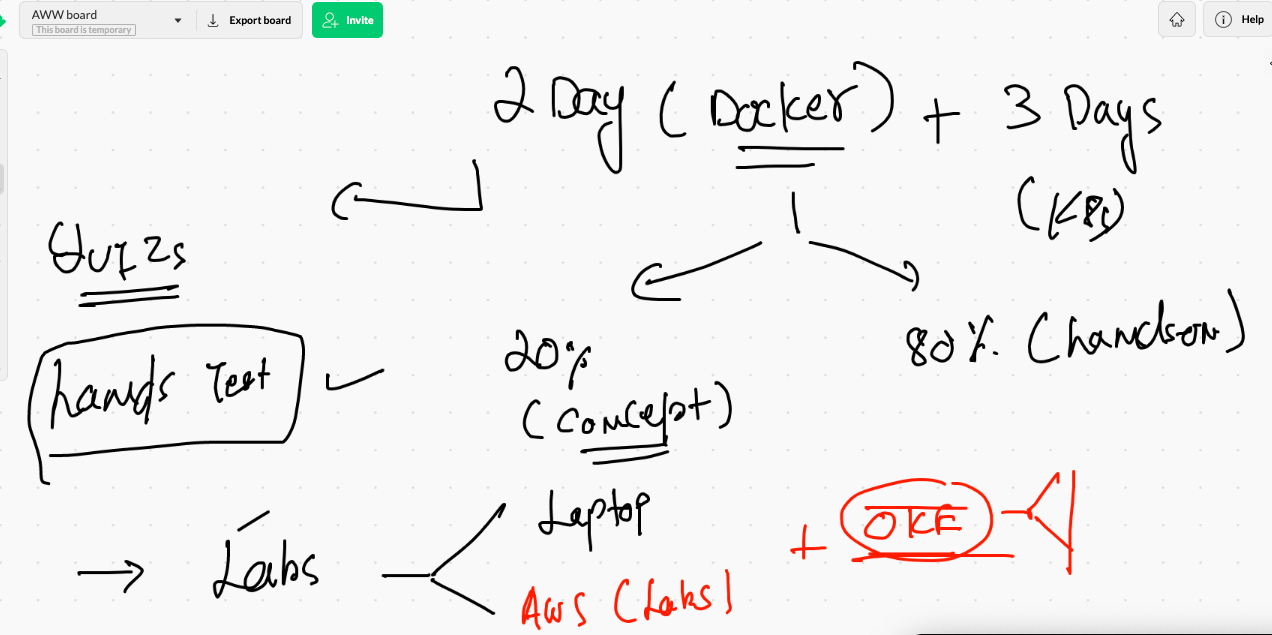 AWW board
This board is temporary
Export board
Invite
Help
2 Day (Docker) + 3 Days
(K8s)
Quizs
hands Test
20%
(concept)
80% (handson)
→ Labs
Laptop
AWS (Labs)
+ OKE